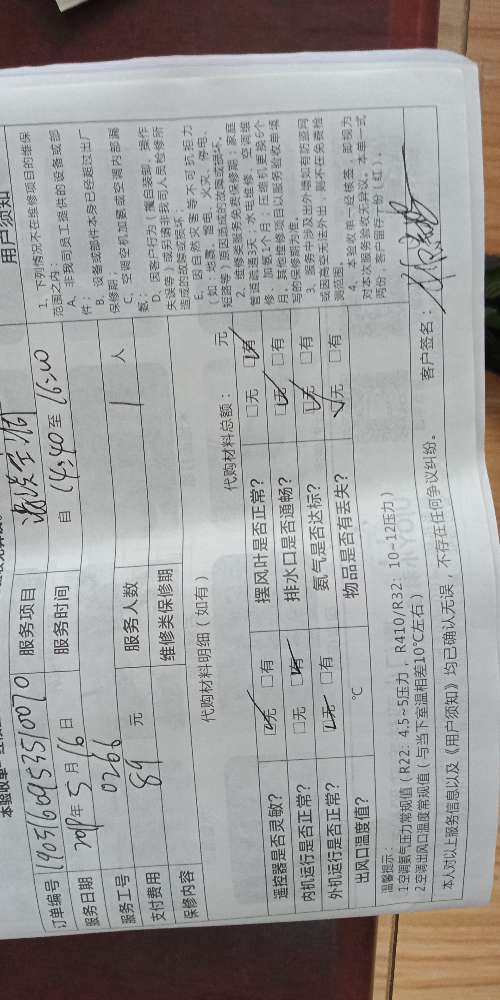 用户须知
订单编号 1905160953510070 服务项目
服务日期 2019年5月16日 服务时间 自 14:40 至 16:00
服务工号 0266 服务人数 1 人
支付费用 89 元 维修类保修期
保修内容
代购材料明细（如有） 代购材料总额： 元
遥控器是否灵敏？ □无 □有 摆风叶是否正常？ □无 □有
内机运行是否正常？ □无 □有 排水口是否通畅？ □无 □有
外机运行是否正常？ □无 □有 氨气是否达标？ □无 □有
出风口温度值？ ℃ 物品是否有丢失？ □无 □有
温馨提示：
1空调氨气压力常规值（R22：4.5~5压力，R410/R32：10-12压力）
2空调出风口温度常规值（与当下室温相差10℃左右）
本人对以上服务信息以及《用户须知》均已确认无误，不存在任何争议纠纷。 客户签名：
1、下列情况不在维修项目的维保
范围之内：
A、非我司员工提供的设备或部
件；
B、设备或部件本身已经超过出厂
保修期；
C、空调空机加氨或空调内部漏
氨；
D、因客户行为（擅自装卸、操作
失误等）或另请非我司人员检修所
造成的故障或损坏；
E、因自然灾害等不可抗拒力
（如：地震、雷电、火灾、停电、
短路等）原因造成的故障或损坏。
2、维修类服务免费保修期：家庭
管道疏通3天；水电维修、空调维
修、加氨1个月；压缩机更换6个
月；其他维修项目以服务验收单填
写的保修期为准。
3、服务中涉及出外墙如有防盗网
或因高空无法外出，则不在免费检
测范围。
4、本验收单一经核签，即视为
对本次服务验收无异议。本单一式
两份，客户留存一份（红）。